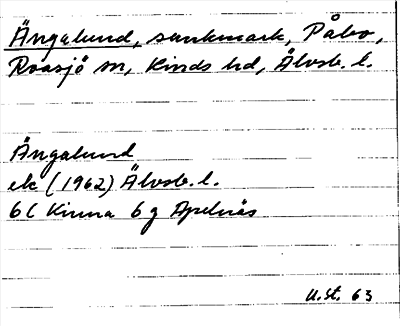 Ängalund, sankmark, Påbo,
Roasjö sn, Kinds hd, Älvsb. l.
Ängalund
ek (1962) Älvsb. l.
6C Kinna 6g Apelnäs
U.St. 63